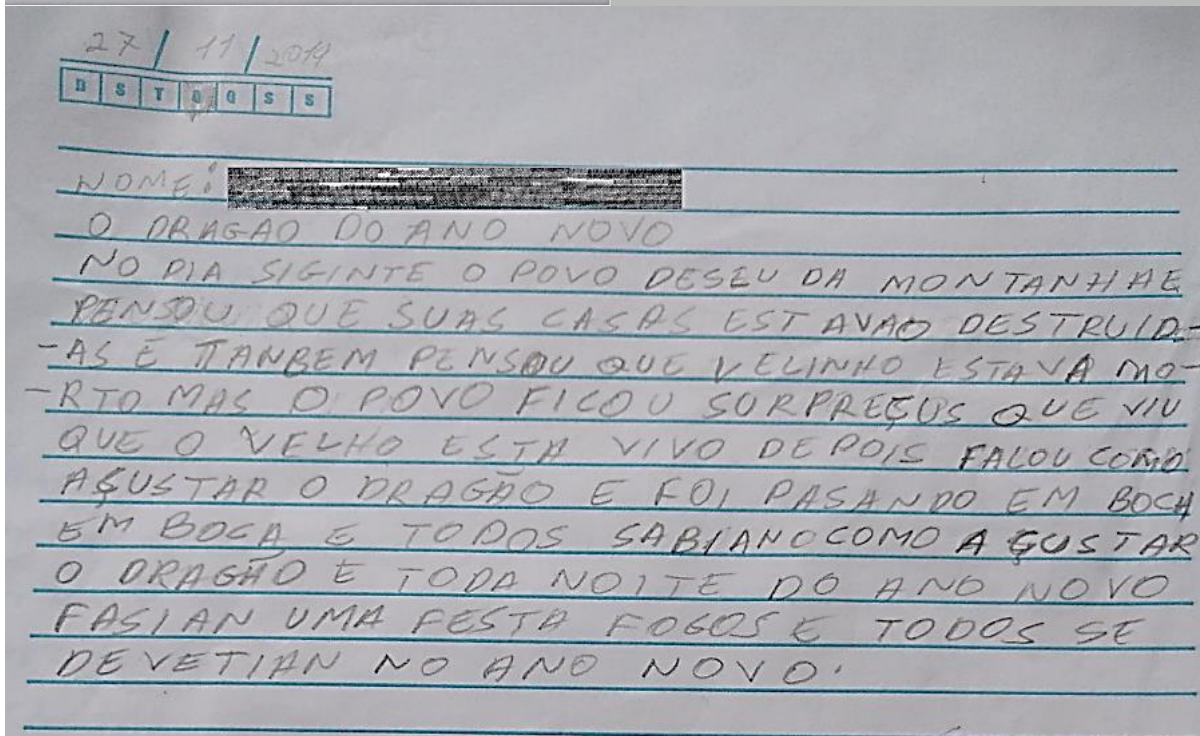 27 / 11 / 2019
D S T Q Q S S
NOME:
O DRAGAO DO ANO NOVO
NO DIA SIGINTE O POVO DESEU DA MONTANHAE
PENSOU QUE SUAS CASAS ESTAVAO DESTRUID-
-AS E TANBEM PENSOU QUE VELINHO ESTAVA MO-
-RTO MAS O POVO FICOU SURPREÇUS QUE VIU
QUE O VELHO ESTA VIVO DEPOIS FALOU COMO
AÇUSTAR O DRAGÃO E FOI PASANDO EM BOCA
EM BOCA E TODOS SABIANO COMO AÇUSTAR
O DRAGÃO E TODA NOITE DO ANO NOVO
FASIAN UMA FESTA FOGOS E TODOS SE
DEVETIAN NO ANO NOVO.